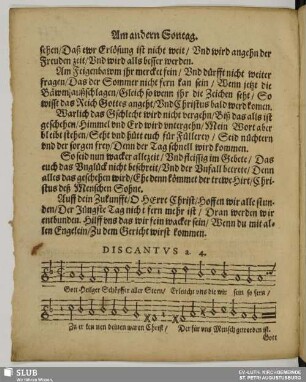 Am andern Sontag.
sehen/Daß ewr Erlösung ist nicht weit/ Vnd wird angehn der
Frewden zeit/Vnd wird alls besser werden.
Am Feigenbawm jhr mercket fein/ Vnd dürfft nicht weiter
fragen/ Das der Sommer nicht fern kan sein/ Wenn jetzt die
Bäwm außschlagen/Gleich so wenn jhr die Zeichen seht/ So
wisst das Reich Gottes angeht/VndChristus bald werd komen.
Warlich das Gschlecht wird nicht vergehn/Biß das alls ist
geschehen/Himmel vnd Erd wird vntergehn/Mein Wort aber
bleibt stehen/Seht vnd hüt euch für Füllerey/ Seid nüchtern
vnd der sorgen frey/Denn der Tag schnell wird kommen.
So seid nun wacker allezeit/ Vnd fleissig im Gebete/ Das
euch das Vnglück nicht beschreit/Vnd der Vnfall betrete/Denn
alles das geschehen wird/Ehe denn kömmet der trewe Hirt/Chri-
stus deß Menschen Sohne.
Auff dein Zukunfft/O HErre Christ/Hoffen wir alle stun-
den/Der Jüngste Tag nicht fern mehr ist/ Dran werden wir
entbunden. Hilff vns das wir fein wacker sein/ Wenn du mit al-
len Engelein/Zu dem Gericht wirst kommen.
DISCANTVS 2. 4.
Gott Heilger Schöpffer aller Stern/ Erleucht vns die wir sein so fern/
Zu er ken nen deinen waren Christ/ Der für vns Mensch geworden ist.
Gott
SLUB
Wir führen Wissen.
EV.-LUTH. KIRCHGEMEINDE
ST. PETRI AUGUSTUSBURG